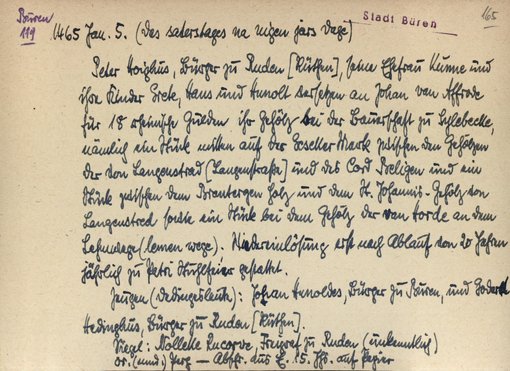 Büren
119
Stadt Büren
165
1465 Jan. 5. (des saterstages na nigen jars dage)
Peter Hoighus, Bürger zu Ruden [Rüthen], seine Ehefrau Kunne und
ihre Kinder Grete, Hans und Arnolt versetzen an Johan van Affrode
für 18 rheinische Gulden ihr Gehölz bei der Bauerschaft zu
nämlich ein Stück mitten auf der Geseker Mark zwischen den Gehölzen
der von Langenstrad [Langenstraße] und des Cord und ein
Stück zwischen dem holz und dem St. Johannis-Gehölz von
Langenstred sowie ein Stück bei dem Gehölz der van Horde an dem
Lehmwege (lemen wege). Niedereinlösung erst nach Ablauf von 20 Jahren
jährlich zu Petri Stuhlfeier gestattet.
Zeugen (Dedingesleute): Johan Arnoldes, Bürger zu Büren, und Godert
Hedinghus, Bürger zu Ruden [Rüthen].
Siegel: Nolleke Freigraf zu Ruden (unkenntlich)
or. (mnd.) Perg — Abschr. aus E. 15. Jhs. auf Papier